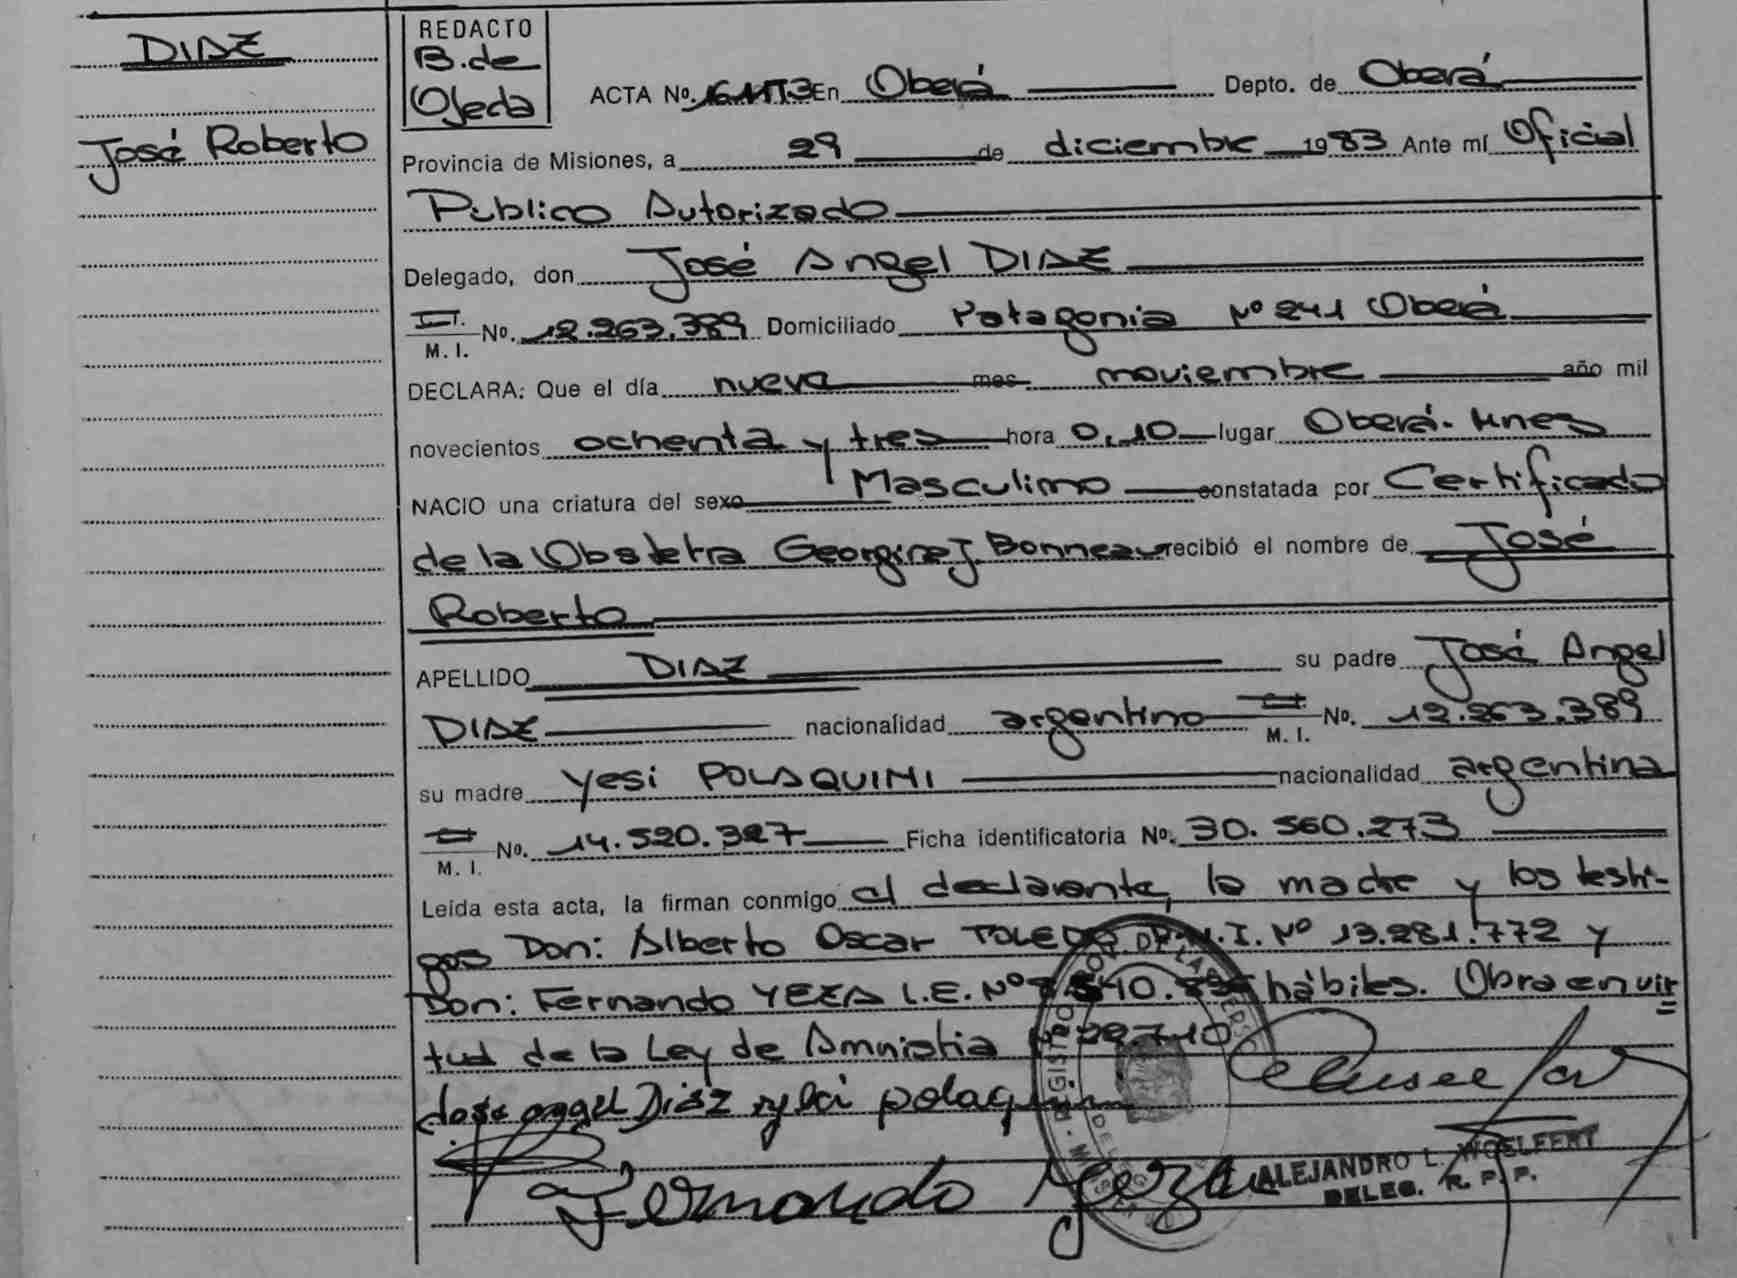 DIAZ
José Roberto
REDACTO
B. de
Ojeda
ACTA No. En Oberá Depto. de Oberá
Provincia de Misiones, a 29 de diciembre 1983 Ante mí Oficial
Público Autorizado
Delegado, don José Angel DIAZ
M. I. No. 12.263.389 Domiciliado Patagonia Nº 241 Oberá
DECLARA: Que el día nueve mes noviembre año mil
novecientos ochenta y tres hora 0,10 lugar Oberá - Mnes
NACIO una criatura del sexo Masculino constatada por Certificado
de la Obstetra Georgina J. Bonneau recibió el nombre de José
Roberto
APELLIDO DIAZ su padre José Angel
DIAZ nacionalidad argentino M. I. No. 12.263.389
su madre Yesi POLAQUINI nacionalidad argentina
M. I. No. 14.520.327 Ficha identificatoria No. 30.560.273
Leída esta acta, la firman conmigo el declarante, la madre y los testi-
gos Don: Alberto Oscar TOLEDO D.N.I. Nº 13.281.772 y
Don: Fernando YEZA L.E. Nº hábiles. Obra en vir
tud de la Ley de Amnistia 22710
José angel Diaz yesi polaquini
Fernando Yeza
ALEJANDRO L. WOELFERT
DELEG. R. P. P.